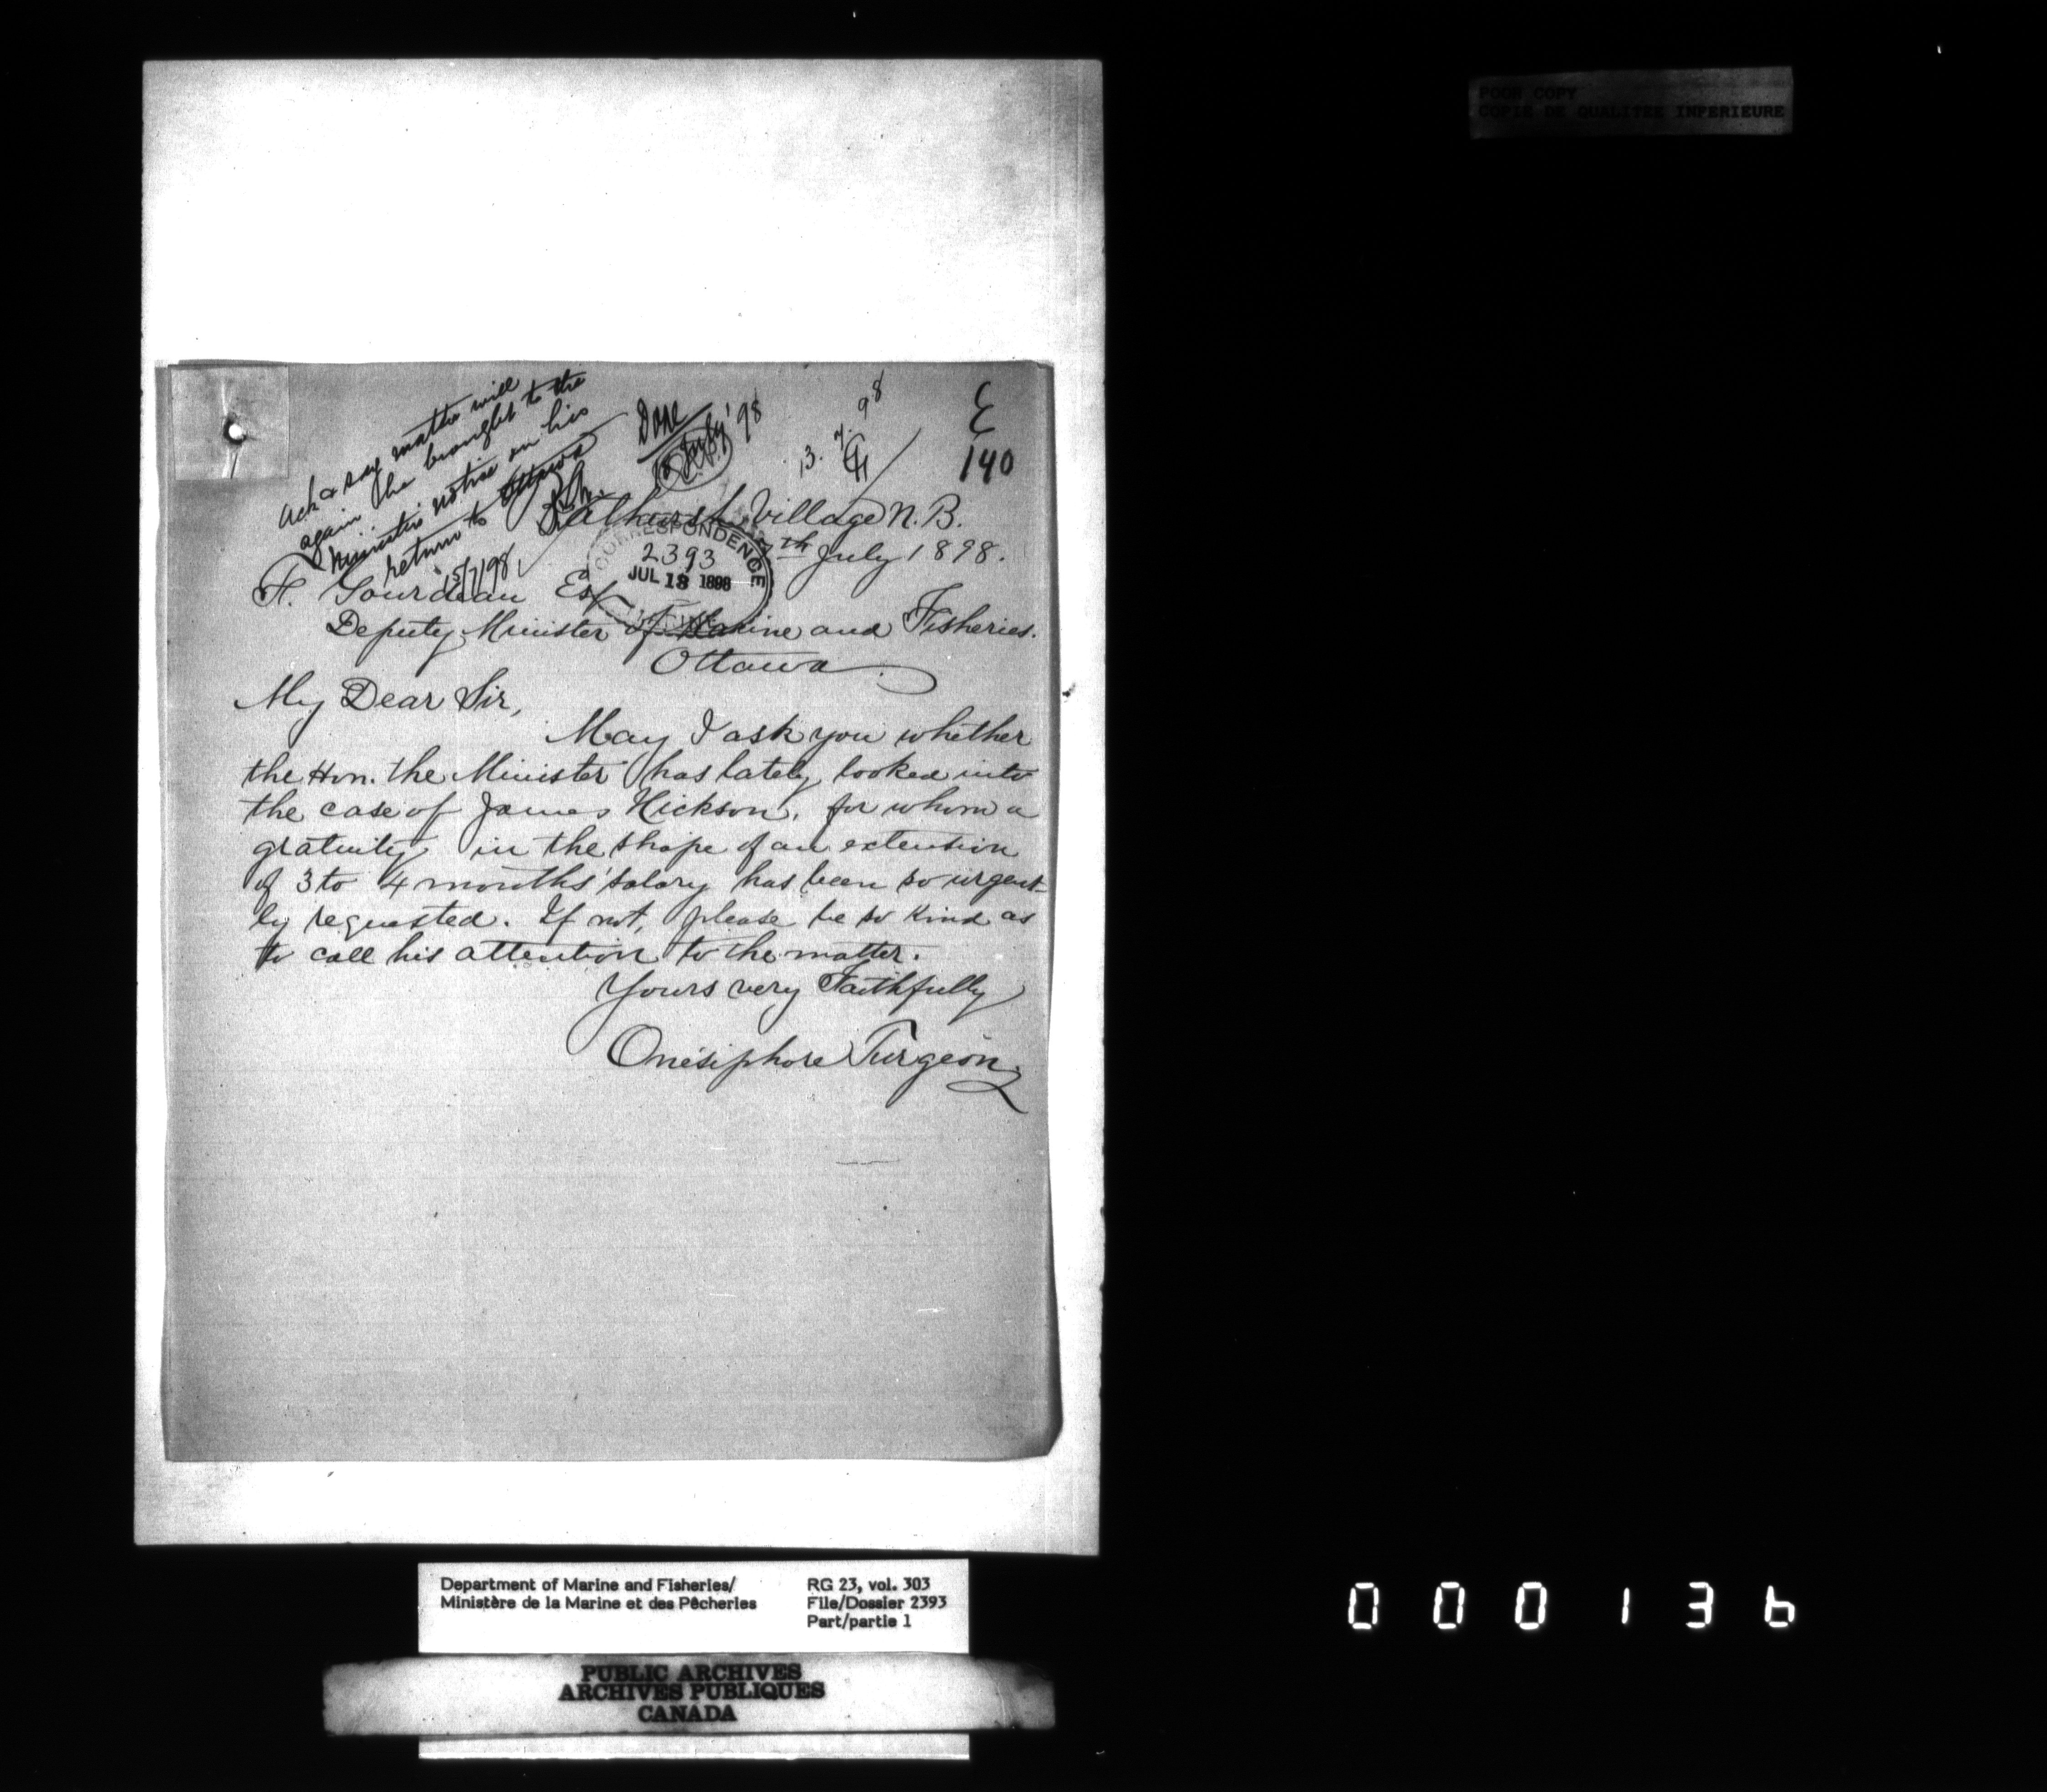 POOR COPY
COPIE DE QUALITEE INFERIEURE
Ack & say matter will
again be brought to the
Minister's notice on his
return to Ottawa
15/7/98
Done
July '98
13. 7. 98
E
140
Bathurst Village N. B.
7th July 1898.
CORRESPONDENCE
2393
JUL 13 1898
F. Gourdeau Esq
Deputy Minister of Marine and Fisheries.
Ottawa
My Dear Sir,
May I ask you whether
the Hon. the Minister has lately looked into
the case of James Hickson, for whom a
gratuity in the shape of an extension
of 3 to 4 months' salary has been so urgent-
ly requested. If not, please be so kind as
to call his attention to the matter.
Yours very Faithfully
Onésiphore Turgeon
Department of Marine and Fisheries/
Ministère de la Marine et des Pêcheries
RG 23, vol. 303
File/Dossier 2393
Part/partie 1
PUBLIC ARCHIVES
ARCHIVES PUBLIQUES
CANADA
000136